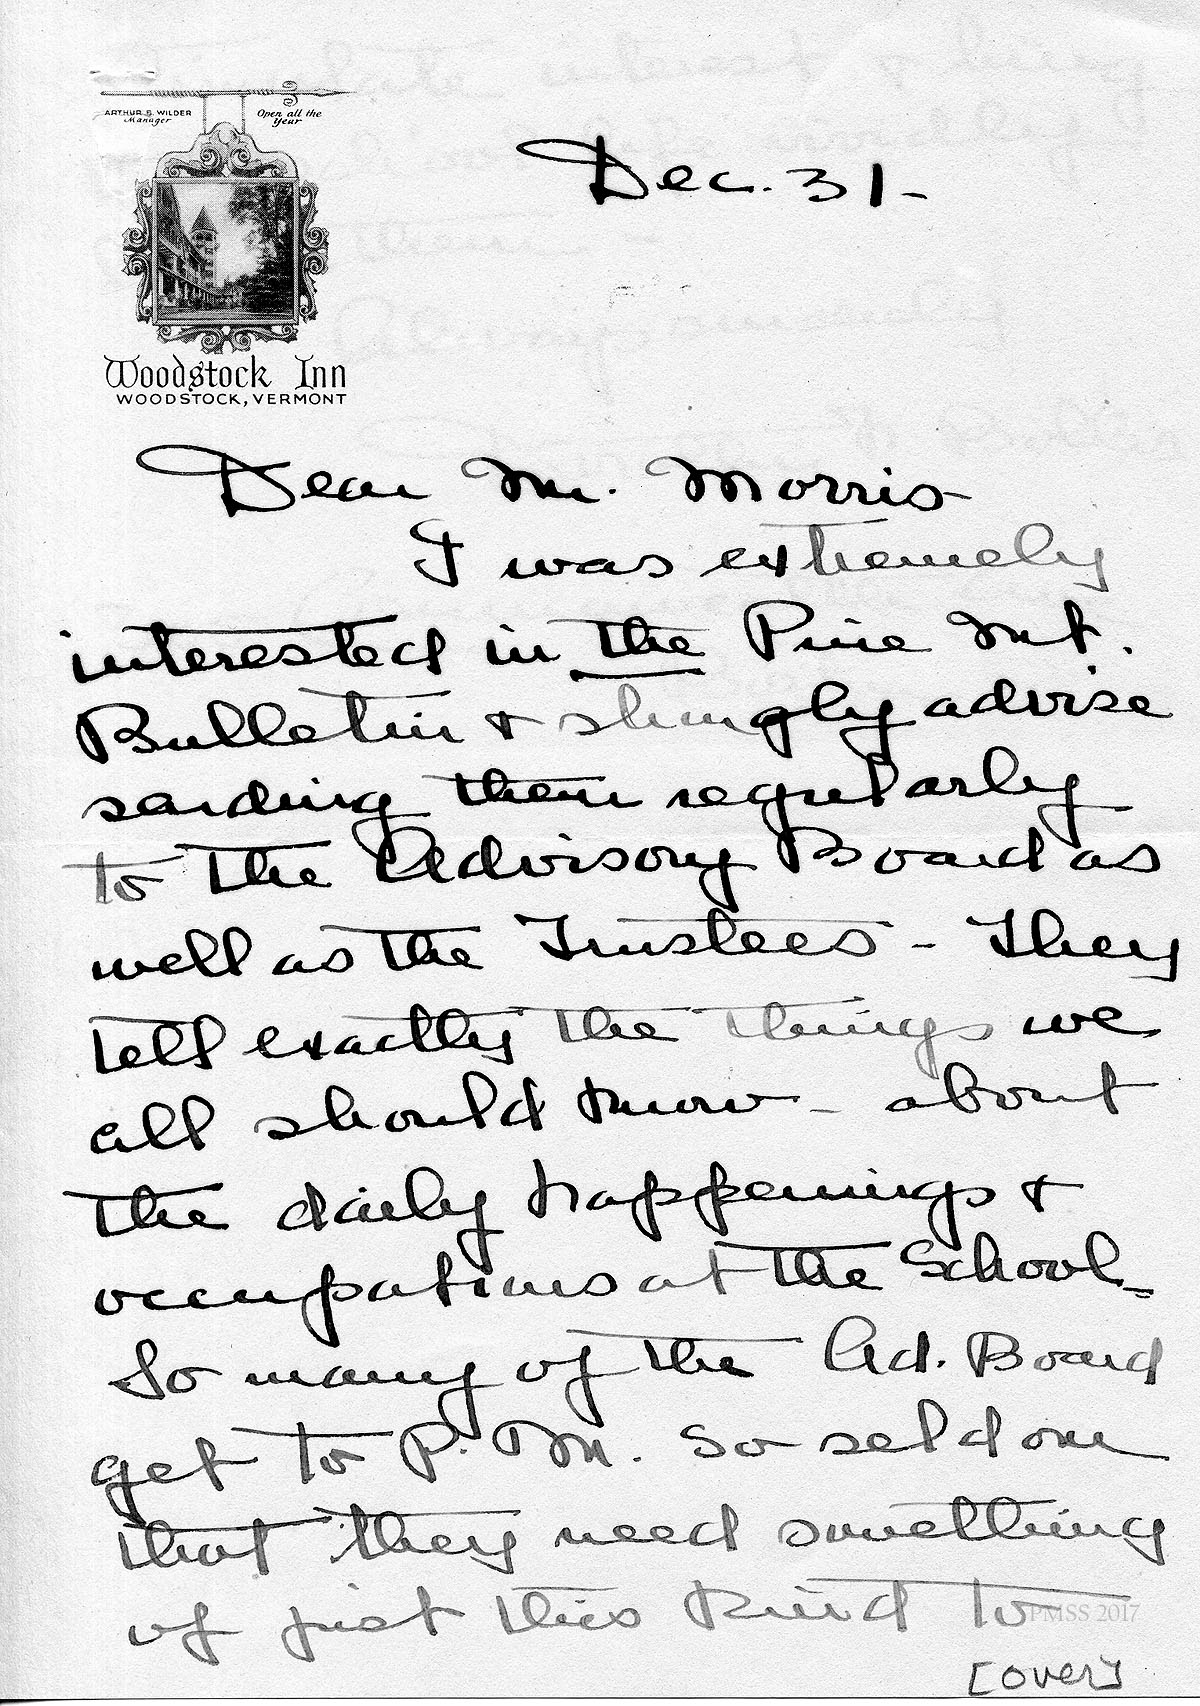 ARTHUR B. WILDER
Manager
Open all the
Year
Dec. 31-
Woodstock Inn
WOODSTOCK, VERMONT
Dear Mr. Morris
I was extremely
interested in the Pine Mt.
Bulletin & strongly advise
sending them regularly
to the Advisory Board as
well as the Trustees - They
tell exactly the things we
all should know - about
the daily happenings &
occupations at the School -
So many of the Ad. Board
get to P. M. so seldom
that they need something
of just this kind to
PMSS 2017
[over]